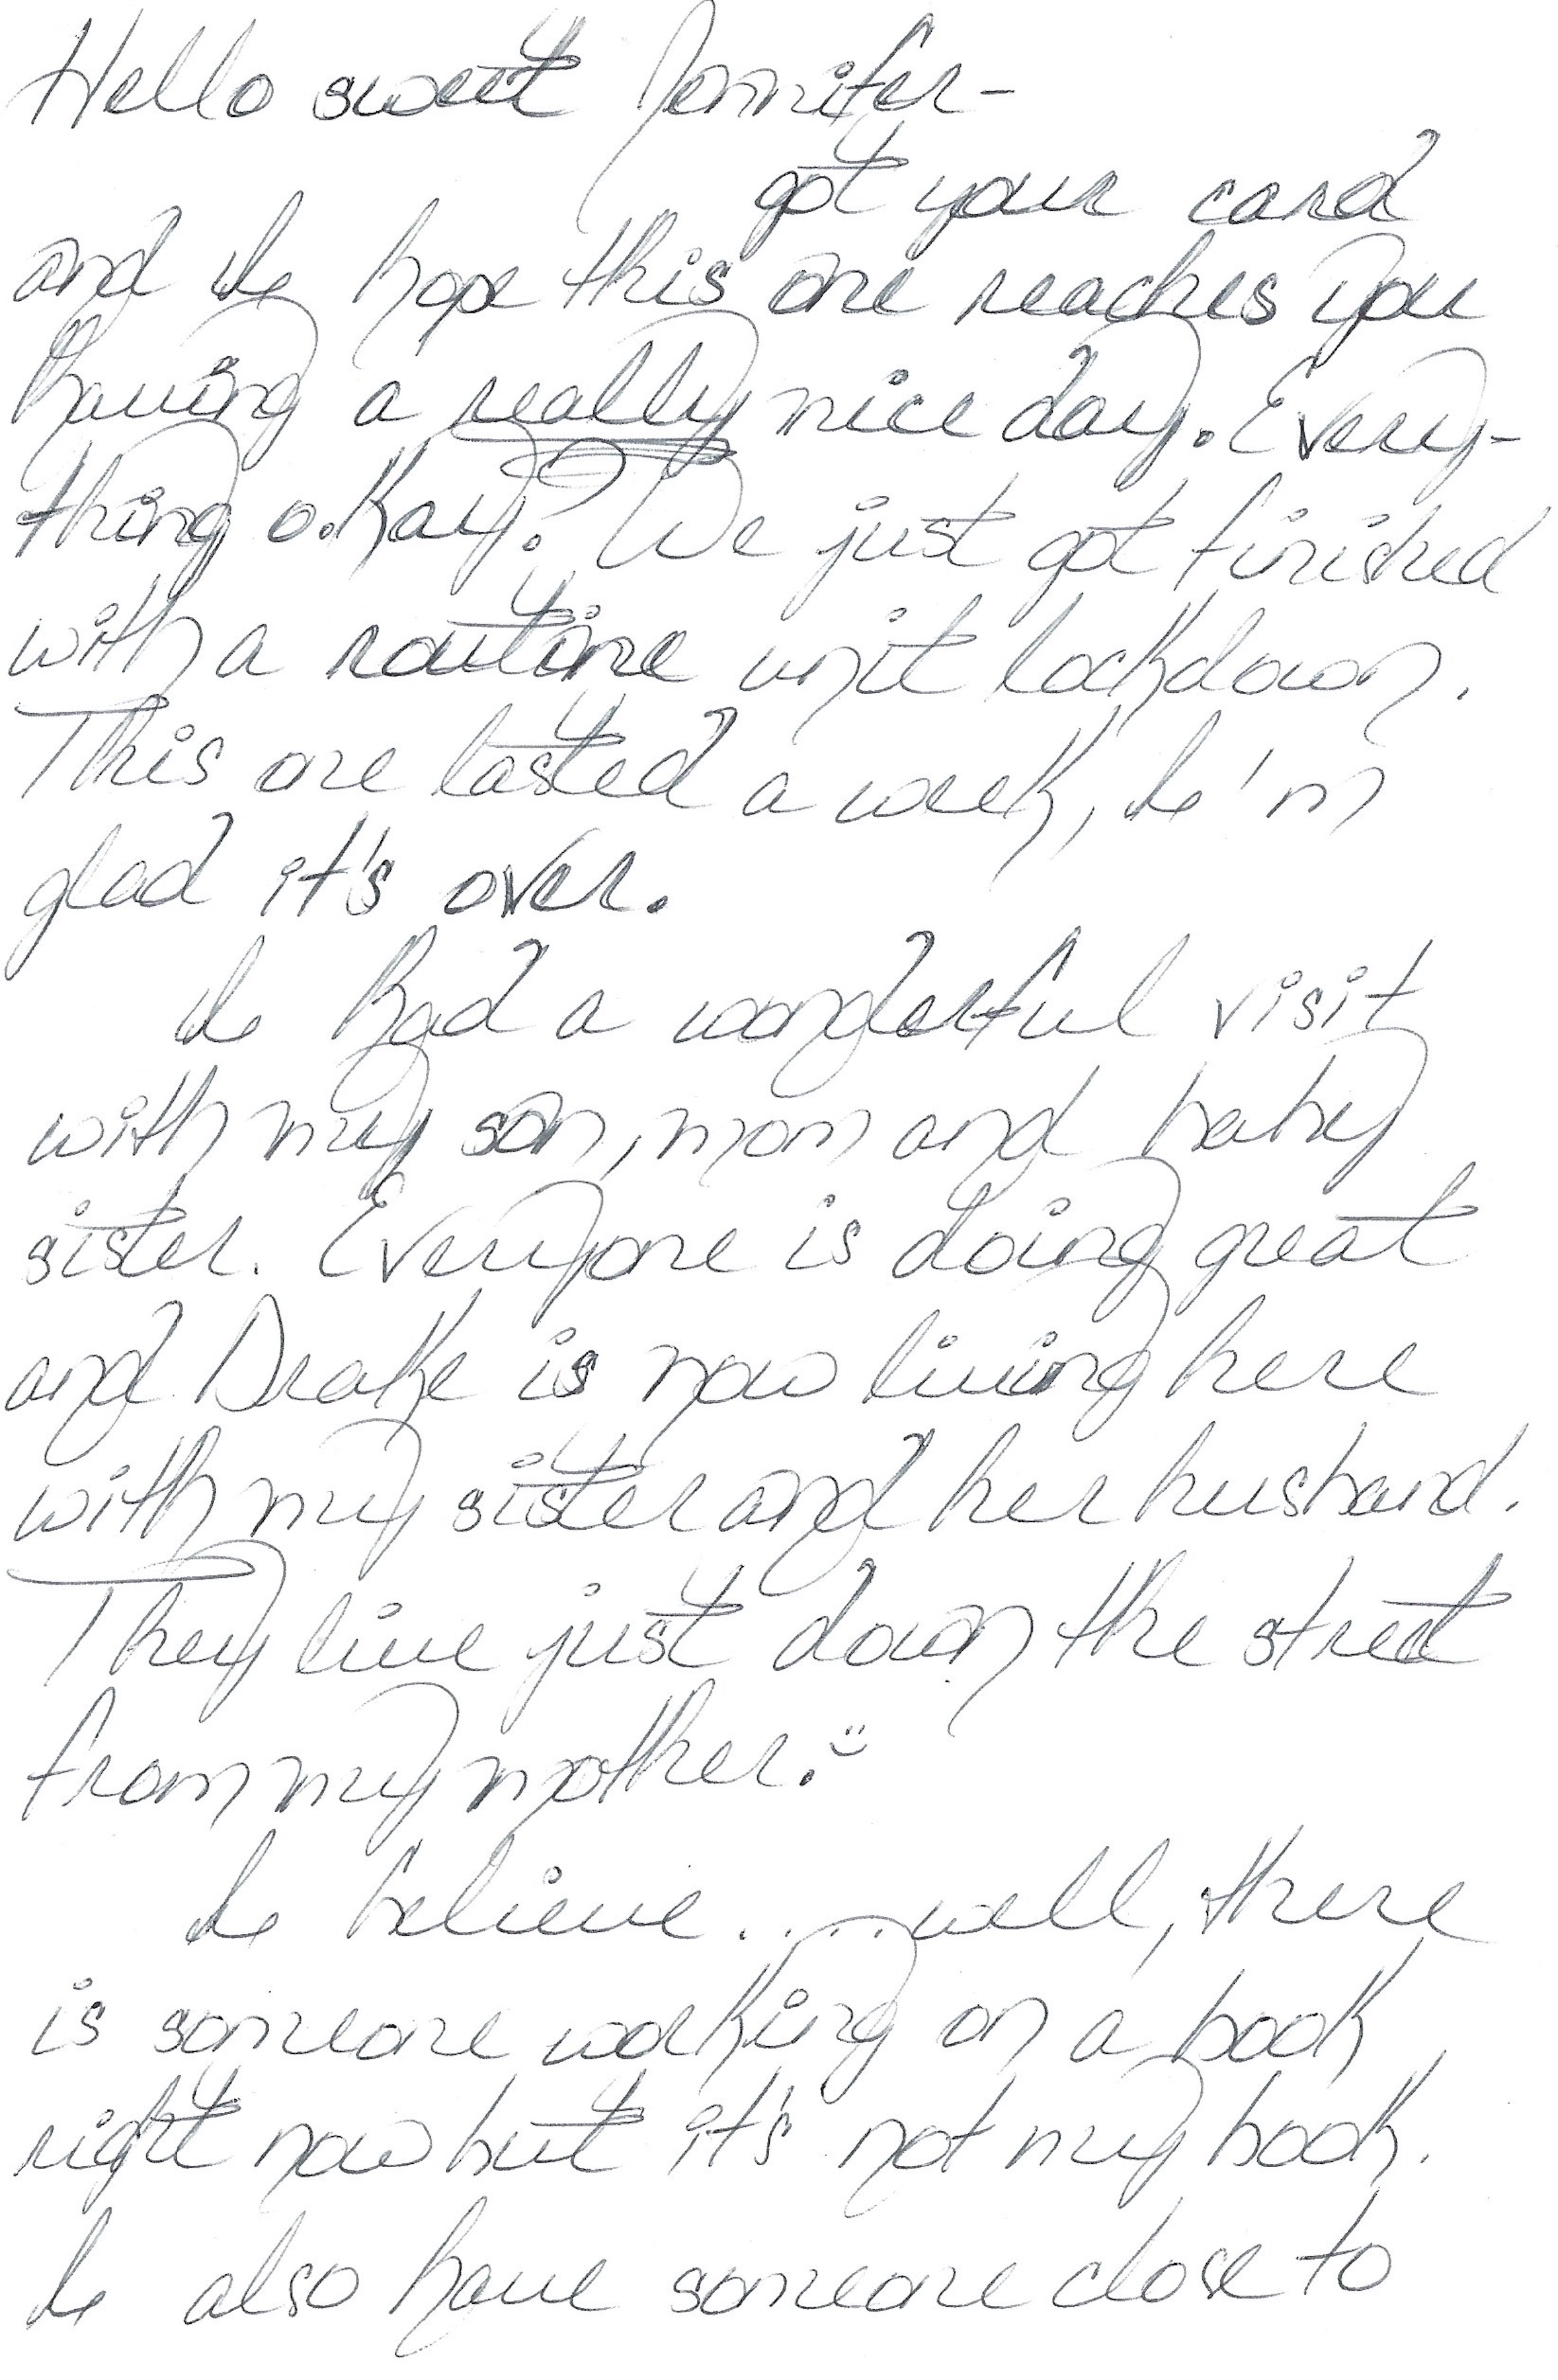 Hello sweet Jennifer-
got your card
and I hope this one reaches you
having a really nice day. Every-
thing o.kay? We just got finished
with a routine unit lockdown.
This one lasted a week, I'm
glad it's over.
I had a wonderful visit
with my son, mom and baby
sister. Everyone is doing great
and Drake is now living here
with my sister and her husband.
They live just down the street
from my mother. :)
I believe.....well, there
is someone working on a book
right now but it's not my book.
I also have someone close to